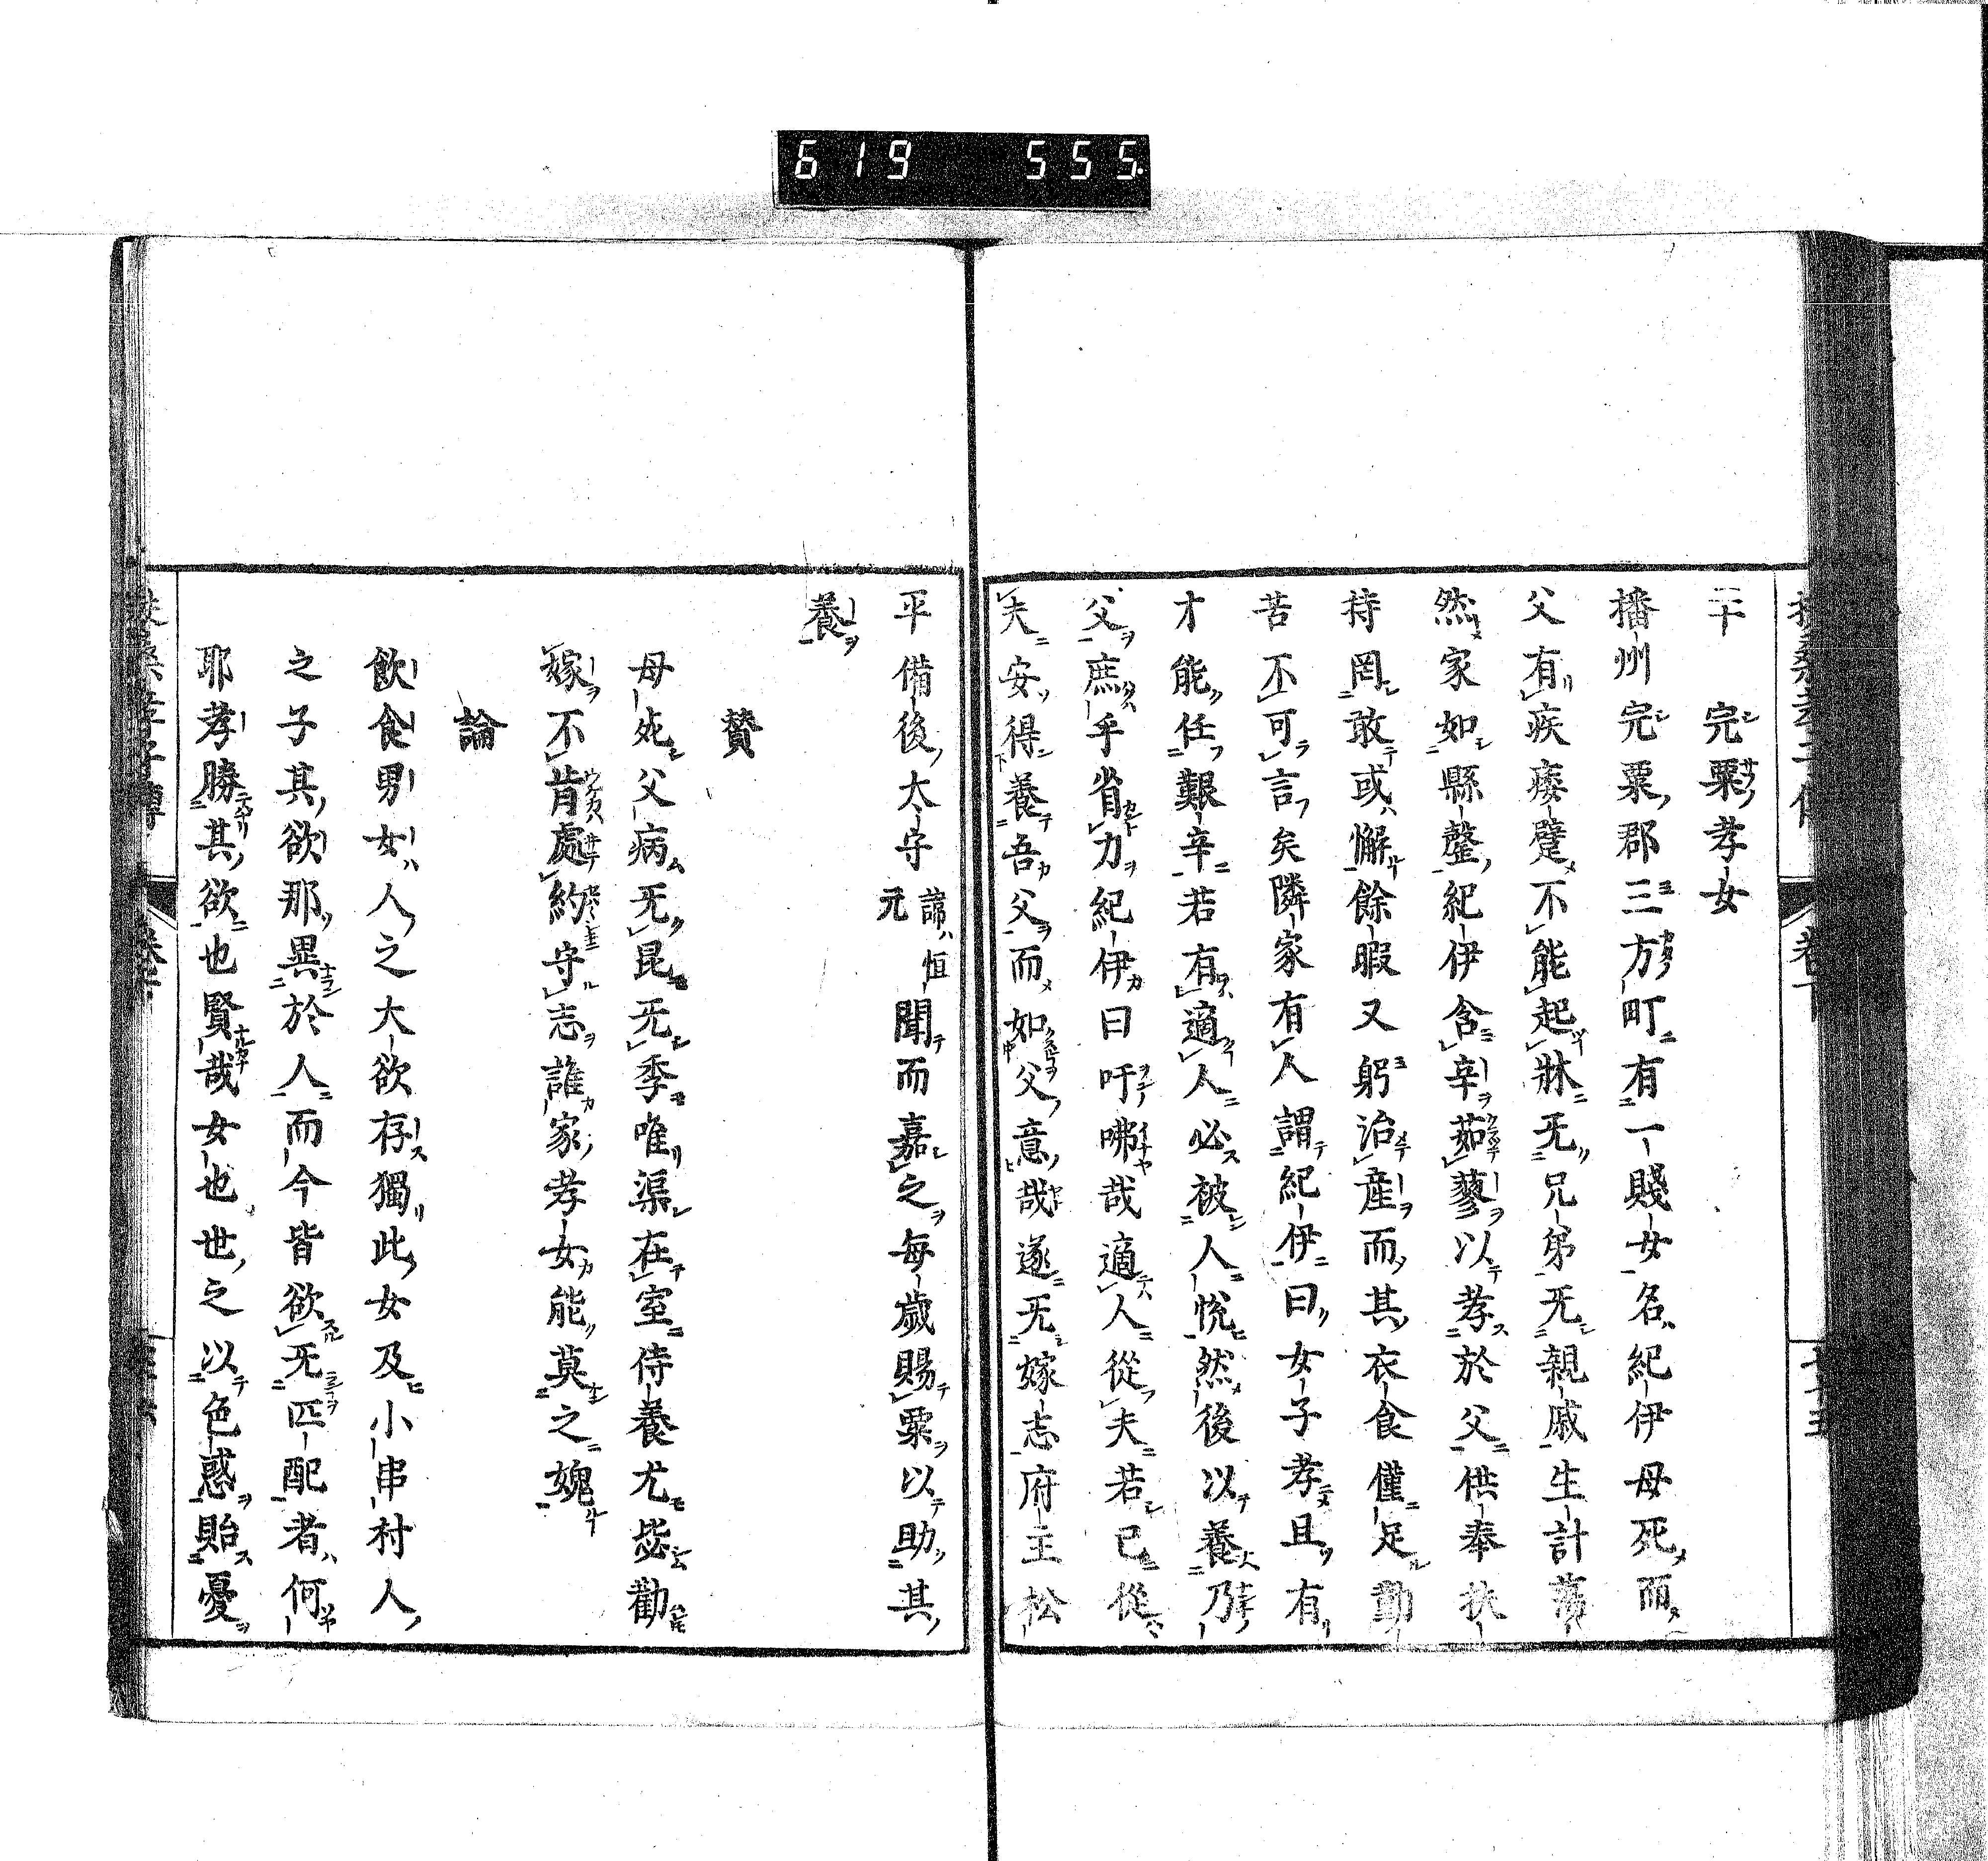 619 555
二十 宍粟孝女
播州宍粟郡三方町有一賤女名紀伊母死而
父有疾痿躄不能起牀无兄弟无親戚生計蕩
然家如縣罄紀伊含辛茹蓼以孝於父供奉扶
持罔敢或懈餘暇又躬治產而其衣食僅足勤
苦不可言矣隣家有人謂紀伊曰女子孝且有
才能任艱辛若有適人必被人悅然後以養乃
父庶乎省力紀伊曰吁咈哉適人從夫若已從
夫安得養吾父而如父意哉遂无嫁志府主松
平備後大守諱恒元聞而嘉之每歲賜粟以助其
養
賛
母死父病无昆无季唯渠在室侍養尤毖勸
嫁不肯處約守志誰家孝女能莫之媿
論
飲食男女人之大欲存獨此女及小串村人
之子其欲那異於人而今皆欲无匹配者何
耶孝勝其欲也賢哉女也世之以色惑貽憂